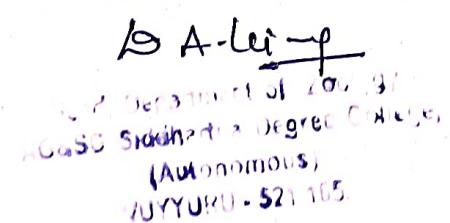 Department of Zoology
AG&SG Siddhartha Degree College,
(Autonomous)
VUYYURU - 521 165.